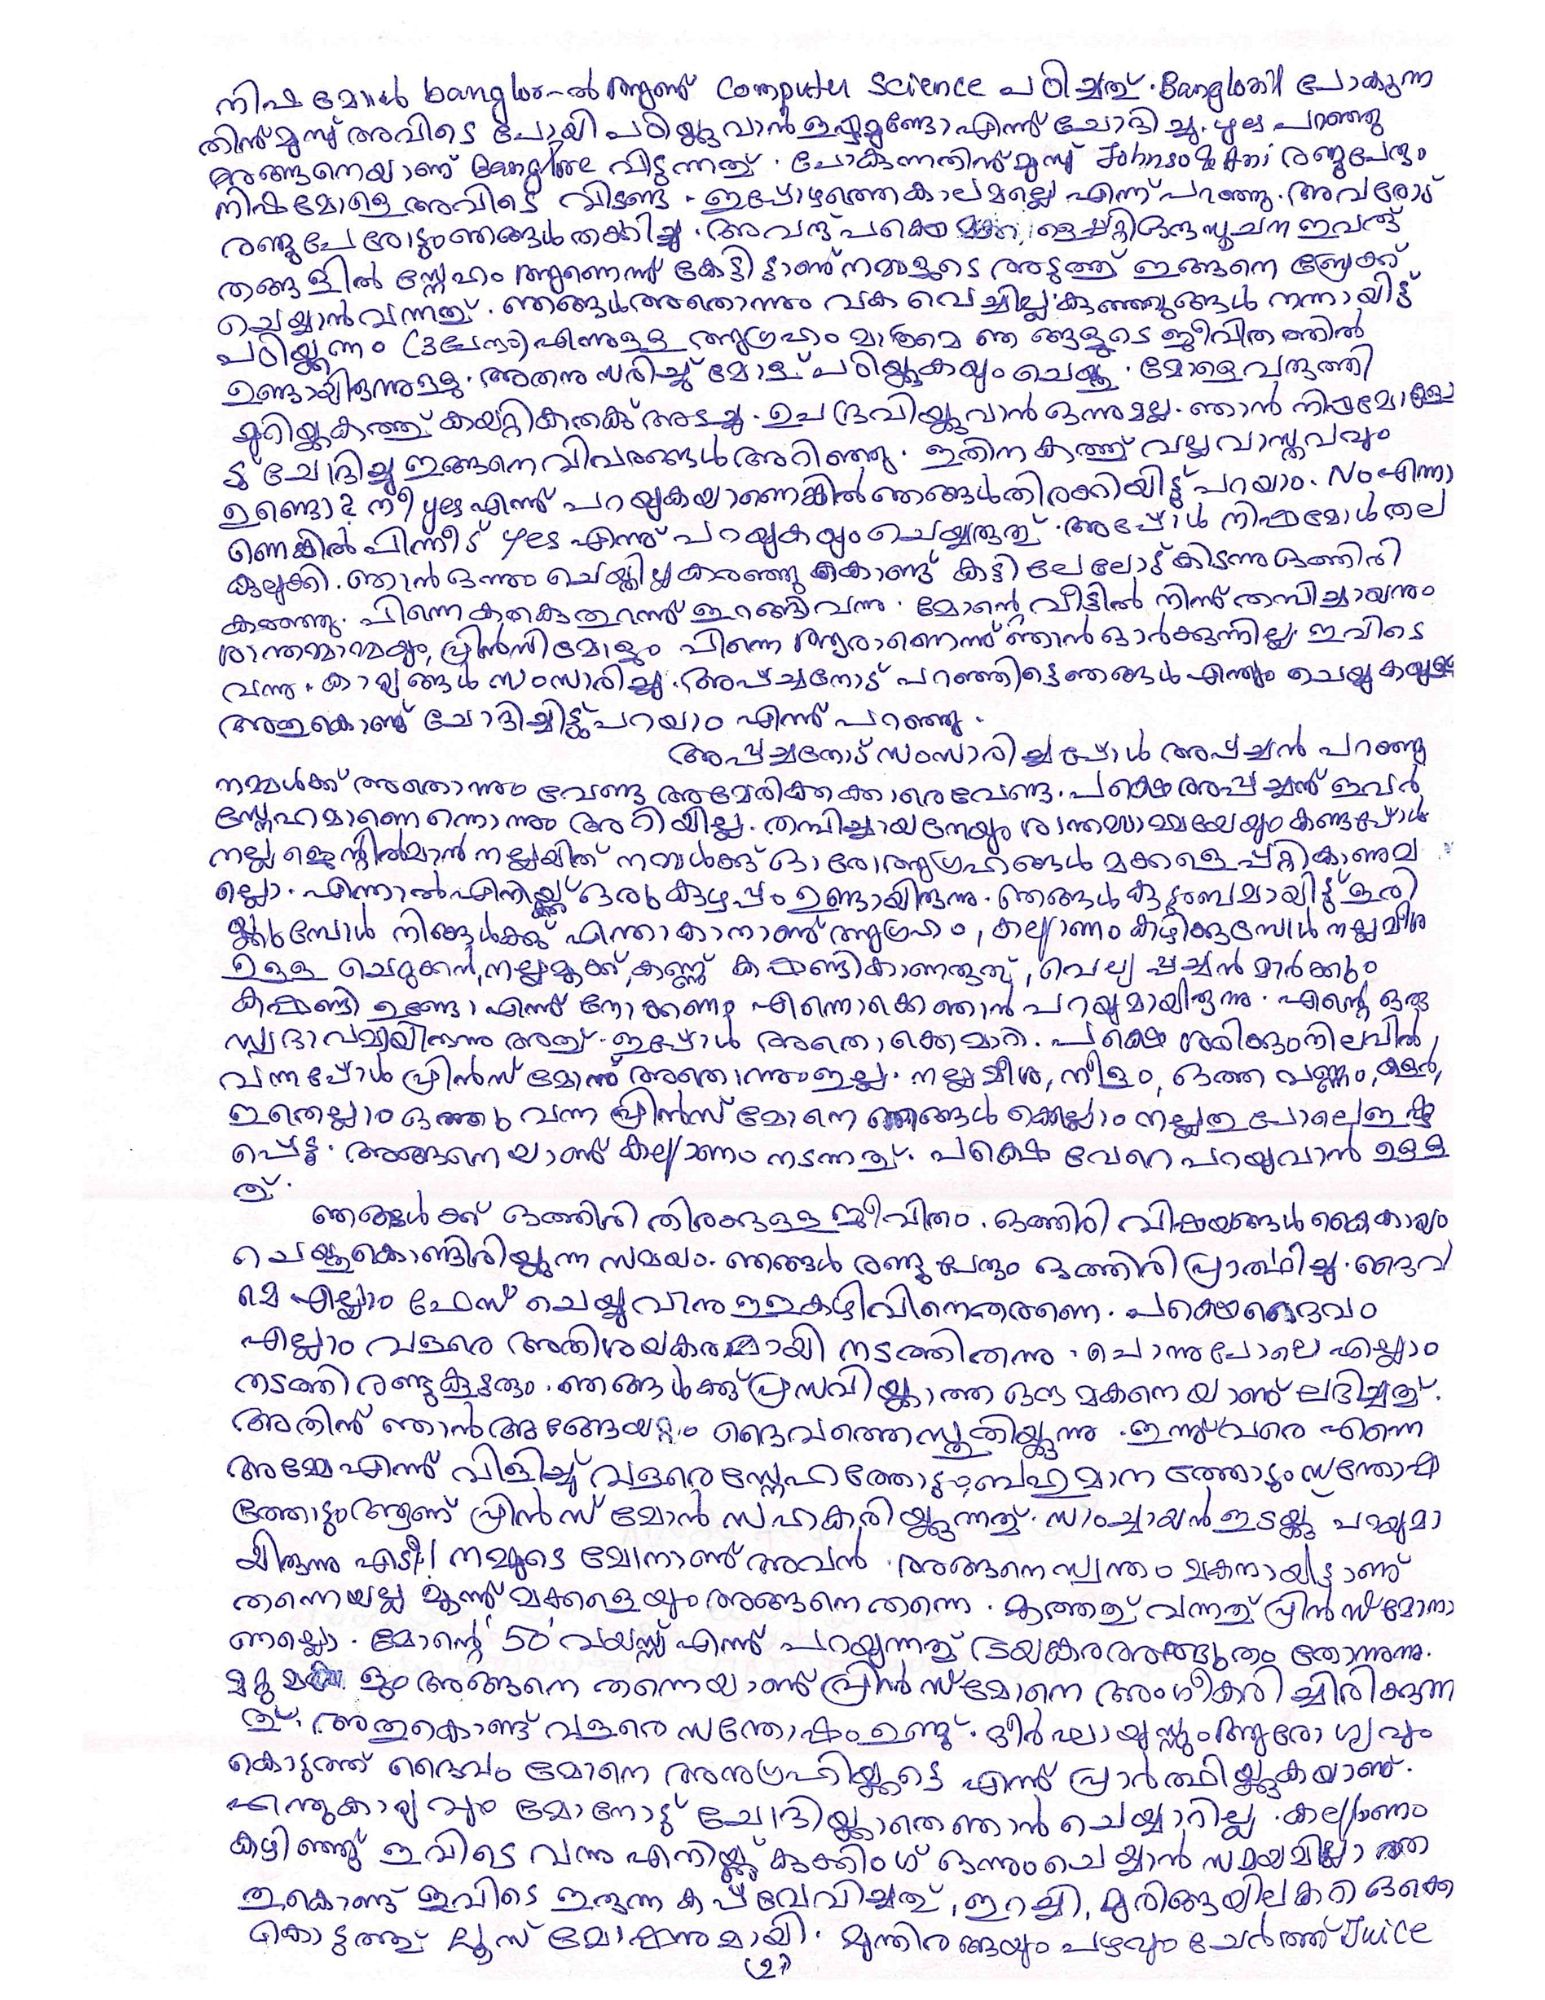 നിഷ മോൾ banglore-ൽ ആണ് Computer Science പഠിച്ചത്. Bangloril പോകുന്ന
തിന് മുമ്പ് അവിടെ പോയി പഠിയ്ക്കുവാൻ ഇഷ്ടമുണ്ടോ എന്ന് ചോദിച്ചു. yes പറഞ്ഞു
അങ്ങനെയാണ് Banglore വിട്ടുന്നത്. പോകുന്നതിന് മുമ്പ് Johnson & Ani രണ്ടുപേരും
നിഷമോളെ അവിടെ വിടണ്ട. ഇപ്പോഴത്തെ കാലമല്ലെ എന്ന് പറഞ്ഞു. അവരോട്
രണ്ടുപേരോടും ഞങ്ങൾ തർക്കിച്ചു. അവന് പക്ഷെ ഒരു സൂചന ഇവര്
തങ്ങളിൽ സ്നേഹം ആണെന്ന് കേട്ടിട്ടാണ് നമ്മളുടെ അടുത്ത് ഇങ്ങനെ ബ്രേക്ക്
ചെയ്യാൻ വന്നത്. ഞങ്ങൾ അതൊന്നും വക വെച്ചില്ല കുഞ്ഞുങ്ങൾ നന്നായിട്ട്
പഠിയ്ക്കണം എന്നുള്ള ആഗ്രഹം മാത്രമെ ഞങ്ങളുടെ ജീവിതത്തിൽ
ഉണ്ടായിരുന്നുള്ളു. അതനുസരിച്ച് മോള് പഠിയ്ക്കുകയും ചെയ്തു. മോളെ വരുത്തി
മുറിയ്ക്കകത്ത് കയറ്റി കതക് അടച്ചു. ഉപദ്രവിയ്ക്കുവാൻ ഒന്നുമല്ല. ഞാൻ നിഷമോളോ
ട് ചോദിച്ചു ഇങ്ങനെ വിവരങ്ങൾ അറിഞ്ഞു. ഇതിനകത്ത് വല്ല വാസ്തവവും
ഉണ്ടൊ? നീ yes എന്ന് പറയുകയാണെങ്കിൽ ഞങ്ങൾ തിരക്കിയിട്ട് പറയാം. No എന്നാ
ണെങ്കിൽ പിന്നീട് yes എന്ന് പറയുകയും ചെയ്യരുത്. അപ്പോൾ നിഷമോൾ തല
കുലുക്കി. ഞാൻ ഒന്നും ചെയ്തില്ല കരഞ്ഞു കൊണ്ട് കട്ടിലേലോട്ട് കിടന്നു ഒത്തിരി
കരഞ്ഞു. പിന്നെ കതകു തുറന്ന് ഇറങ്ങി വന്നു. മോന്റെ വീട്ടിൽ നിന്ന് തമ്പിച്ചായനും
ശാന്തമ്മാമ്മയും, പ്രിൻസിമോളും പിന്നെ ആരാണെന്ന് ഞാൻ ഓർക്കുന്നില്ല ഇവിടെ
വന്നു. കാര്യങ്ങൾ സംസാരിച്ചു. അപ്പച്ചനോട് പറഞ്ഞിട്ടെ ഞങ്ങൾ എന്തും ചെയ്യുകയുള്ളു
അതുകൊണ്ട് ചോദിച്ചിട്ട് പറയാം എന്ന് പറഞ്ഞു.
അപ്പച്ചനോട് സംസാരിച്ചപ്പോൾ അപ്പച്ചൻ പറഞ്ഞു
നമ്മൾക്ക് അതൊന്നും വേണ്ട അമേരിക്കക്കാരെ വേണ്ട. പക്ഷെ അപ്പച്ചന് ഇവർ
സ്നേഹമാണെന്നൊന്നും അറിയില്ല. തമ്പിച്ചായനേയും ശാന്തമ്മാമ്മയേയും കണ്ടപ്പോൾ
നല്ല ജെന്റിൽമാൻ നല്ല നമ്മൾക്ക് ഓരോ ആഗ്രഹങ്ങൾ മക്കളെപ്പറ്റി കാണുമ
ല്ലൊ. എന്നാൽ എനിയ്ക്ക് ഒരു കുഴപ്പം ഉണ്ടായിരുന്നു. ഞങ്ങൾ കുടുംബമായിട്ട് ഇരി
യ്ക്കുമ്പോൾ നിങ്ങൾക്ക് എന്താകാനാണ് ആഗ്രഹം, കല്യാണം കഴിക്കുമ്പോൾ നല്ല മീശ
ഉള്ള ചെറുക്കൻ, നല്ല മൂക്ക്, കണ്ണ് കഷണ്ടി കാണരുത്, വല്യപ്പച്ചൻമാർക്കും
കഷണ്ടി ഉണ്ടോ എന്ന് നോക്കണം എന്നൊക്കെ ഞാൻ പറയുമായിരുന്നു. എന്റെ ഒരു
സ്വഭാവമായിരുന്നു അത്. ഇപ്പോൾ അതൊക്കെ മാറി. പക്ഷെ ശരിക്കും നിലവിൽ
വന്നപ്പോൾ പ്രിൻസ് മോന് അതൊന്നും ഇല്ല. നല്ല മീശ, നീളം, ഒത്ത വണ്ണം, കളർ,
ഇതെല്ലാം ഒത്തു വന്ന പ്രിൻസ് മോനെ ഞങ്ങൾക്കെല്ലാം നല്ലതുപോലെ ഇഷ്ട
പ്പെട്ടു. അങ്ങനെയാണ് കല്യാണം നടന്നത്. പക്ഷെ വേറെ പറയുവാൻ ഉള്ള
ത്.
ഞങ്ങൾക്ക് ഒത്തിരി തിരക്കുള്ള ജീവിതം. ഒത്തിരി വിഷയങ്ങൾ കൈകാര്യം
ചെയ്തുകൊണ്ടിരിയ്ക്കുന്ന സമയം. ഞങ്ങൾ രണ്ടുപേരും ഒത്തിരി പ്രാർത്ഥിച്ചു. ദൈവ
മെ എല്ലാം ഫേസ് ചെയ്യുവാനുള്ള കഴിവിനെ തരണെ. പക്ഷെ ദൈവം
എല്ലാം വളരെ അതിശയകരമായി നടത്തി തന്നു. പൊന്നുപോലെ എല്ലാം
നടത്തി രണ്ടുകൂട്ടരും. ഞങ്ങൾക്ക് പ്രസവിയ്ക്കാത്ത ഒരു മകനെയാണ് ലഭിച്ചത്.
അതിന് ഞാൻ അങ്ങേയറ്റം ദൈവത്തെ സ്തുതിയ്ക്കുന്നു. ഇന്നുവരെ എന്നെ
അമ്മേ എന്ന് വിളിച്ച് വളരെ സ്നേഹത്തോടും, ബഹുമാനത്തോടും സന്തോഷ
ത്തോടും ആണ് പ്രിൻസ് മോൻ സഹകരിയ്ക്കുന്നത്. സാംച്ചായൻ ഇടയ്ക്കു പറയുമാ
യിരുന്നു എടീ! നമ്മുടെ മോനാണ് അവൻ. അങ്ങനെ സ്വന്തം മകനായിട്ടാണ്
തന്നെയല്ല മൂന്ന് മക്കളെയും അങ്ങനെ തന്നെ. മൂത്തത് വന്നത് പ്രിൻസ് മോനാ
ണല്ലൊ. മോന്റെ '50' വയസ്സ് എന്ന് പറയുന്നത് ഭയങ്കര അത്ഭുതം തോന്നുന്നു.
മറ്റു മക്കളും അങ്ങനെ തന്നെയാണ് പ്രിൻസ് മോനെ അംഗീകരിച്ചിരിക്കുന്ന
ത്. അതുകൊണ്ട് വളരെ സന്തോഷം ഉണ്ട്. ദീർഘായുസ്സും ആരോഗ്യവും
കൊടുത്ത് ദൈവം മോനെ അനുഗ്രഹിയ്ക്കട്ടെ എന്ന് പ്രാർത്ഥിയ്ക്കുകയാണ്.
എന്തുകാര്യവും മോനോട് ചോദിയ്ക്കാതെ ഞാൻ ചെയ്യാറില്ല. കല്യാണം
കഴിഞ്ഞ് ഇവിടെ വന്നു എനിയ്ക്ക് കുക്കിംഗ് ഒന്നും ചെയ്യാൻ സമയമില്ലാത്ത
തുകൊണ്ട് ഇവിടെ ഇരുന്ന കപ്പ വേവിച്ചത്, ഇറച്ചി, മുരിങ്ങയില കറി ഒക്കെ
കൊടുത്ത് ലൂസ് മോഷനുമായി. മുന്തിരങ്ങയും പഴവും ചേർത്ത് Juice
(2)